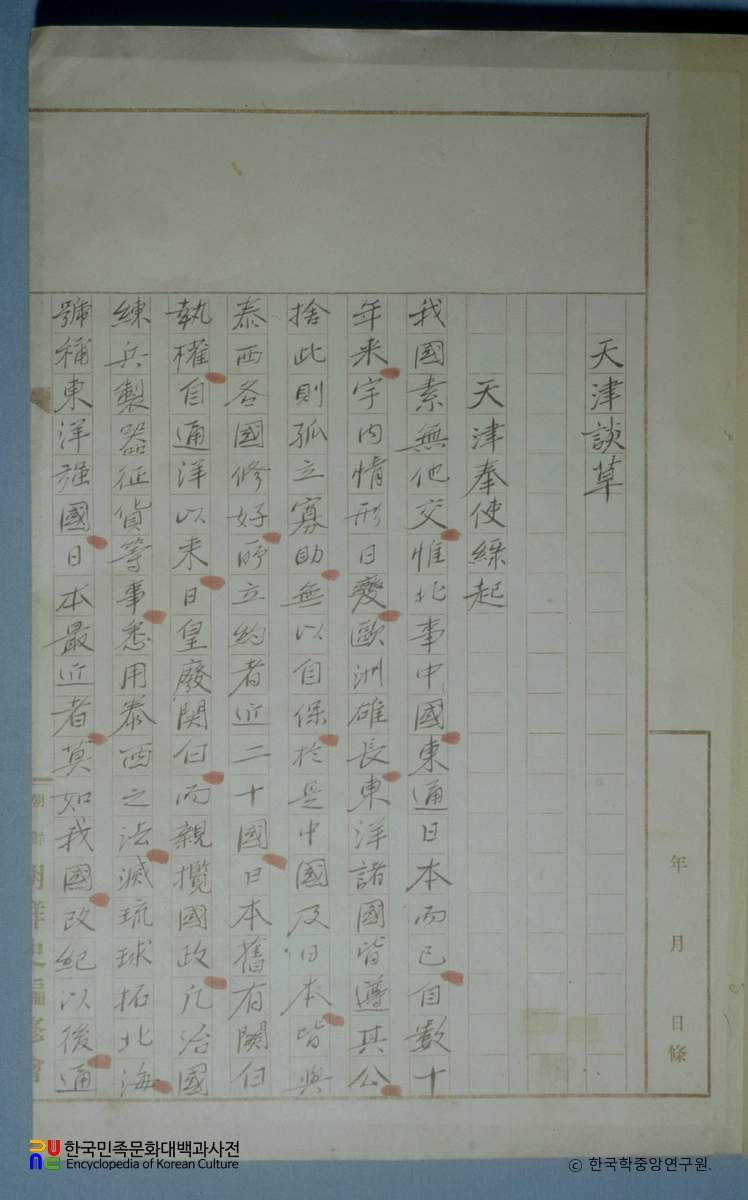 天津談草
天津奉使緣起
我國素無他交惟北事中國東通日本而已自數十
年来宇内情形日變歐洲雄長東洋諸國皆遵其公
捨此則孤立寡助無以自保於是中國及日本皆與
泰西各國修好所立約者近二十國日本舊有關白
執權自通洋以来日皇廢関白而親攬國政凡治國
練兵製器征貨等事悉用泰西之法滅琉球拓北海
號稱東洋强國日本最近者莫如我國改紀以後通
年 月 日條
朝鮮
朝鮮史編修會
한국민족문화대백과사전
Encyclopedia of Korean Culture
© 한국학중앙연구원.